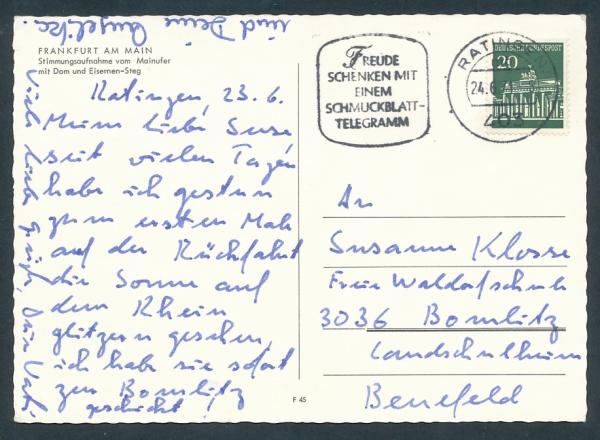 FRANKFURT AM MAIN
Stimmungsaufnahme vom Mainufer
mit Dom und Eisernen-Steg
Ratingen, 23.6.
Meine liebe Suse
seit vielen Tagen
habe ich gestern
zum ersten Male
auf der Rückfahrt
die Sonne auf
dem Rhein
glitzern gesehen,
ich habe sie sofort
zu Bomlitz
geschickt!
Viele liebe Grüße, Dein Vati
und Deine Angelika.
FREUDE
SCHENKEN MIT
EINEM
SCHMUCKBLATT-
TELEGRAMM
RATINGEN
24.6.
403
DEUTSCHE BUNDESPOST
20
An
Susanne Klosse
Freie Waldorfschule
3036 Bomlitz
Landschulheim
Benefeld
F 45